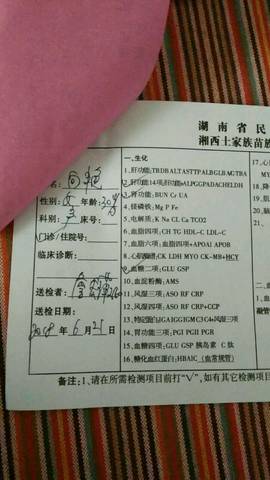 湖南省民
湘西土家族苗族
名：向
性别：女 年龄：30岁
科别： 床号：
门诊/住院号：
临床诊断：
送检者：
送检日期：
2018年6月21日
一、生化
1.肝功能:TBDBALTASTTPALBGLB,AGTBA
2.肝功能14项:肝功能+ALPGGPADACHELDH
3.肾功能:BUN Cr UA
4.镁磷铁:Mg P Fe
5.电解质:K Na CL Ca TCO2
6.血脂四项:CH TG HDL-C LDL-C
7.血脂六项:血脂四项+APOAI APOB
8.心肌酶谱:CK LDH MYO CK-MB+HCY
9.血糖二项:GLU GSP
10.血淀粉酶:AMS
11.风湿三项:ASO RF CRP
12.风湿四项:ASO RF CRP+CCP
13.特定蛋白:IGAIGGIGMC3C4+风湿三项
14.胃功能三项:PGI PGII PGR
15.血糖四项:GLU GSP 胰岛素 C肽
16.糖化血红蛋白:HBAIC (血常规管)
备注：1、请在所需检测项目前打“√”，如有其它检测项目